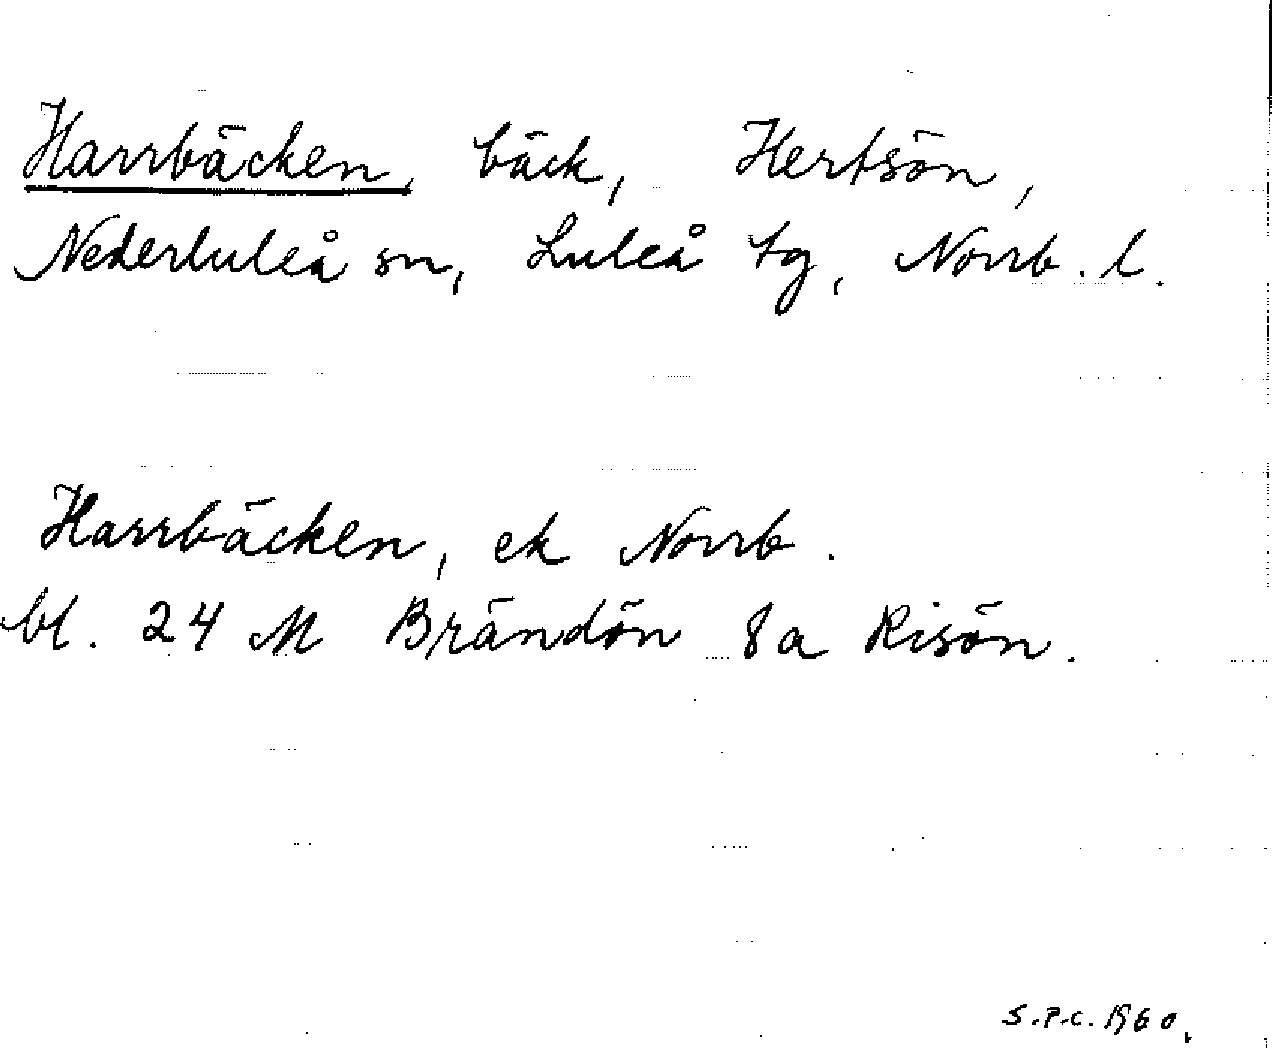 Harrbäcken, bäck, Hertsön,
Nederluleå sn, Luleå tg, Norrb. l.
Harrbäcken, ek Norrb.
bl. 24 M Brändön 8a Risön.
S.P.C. 1960.